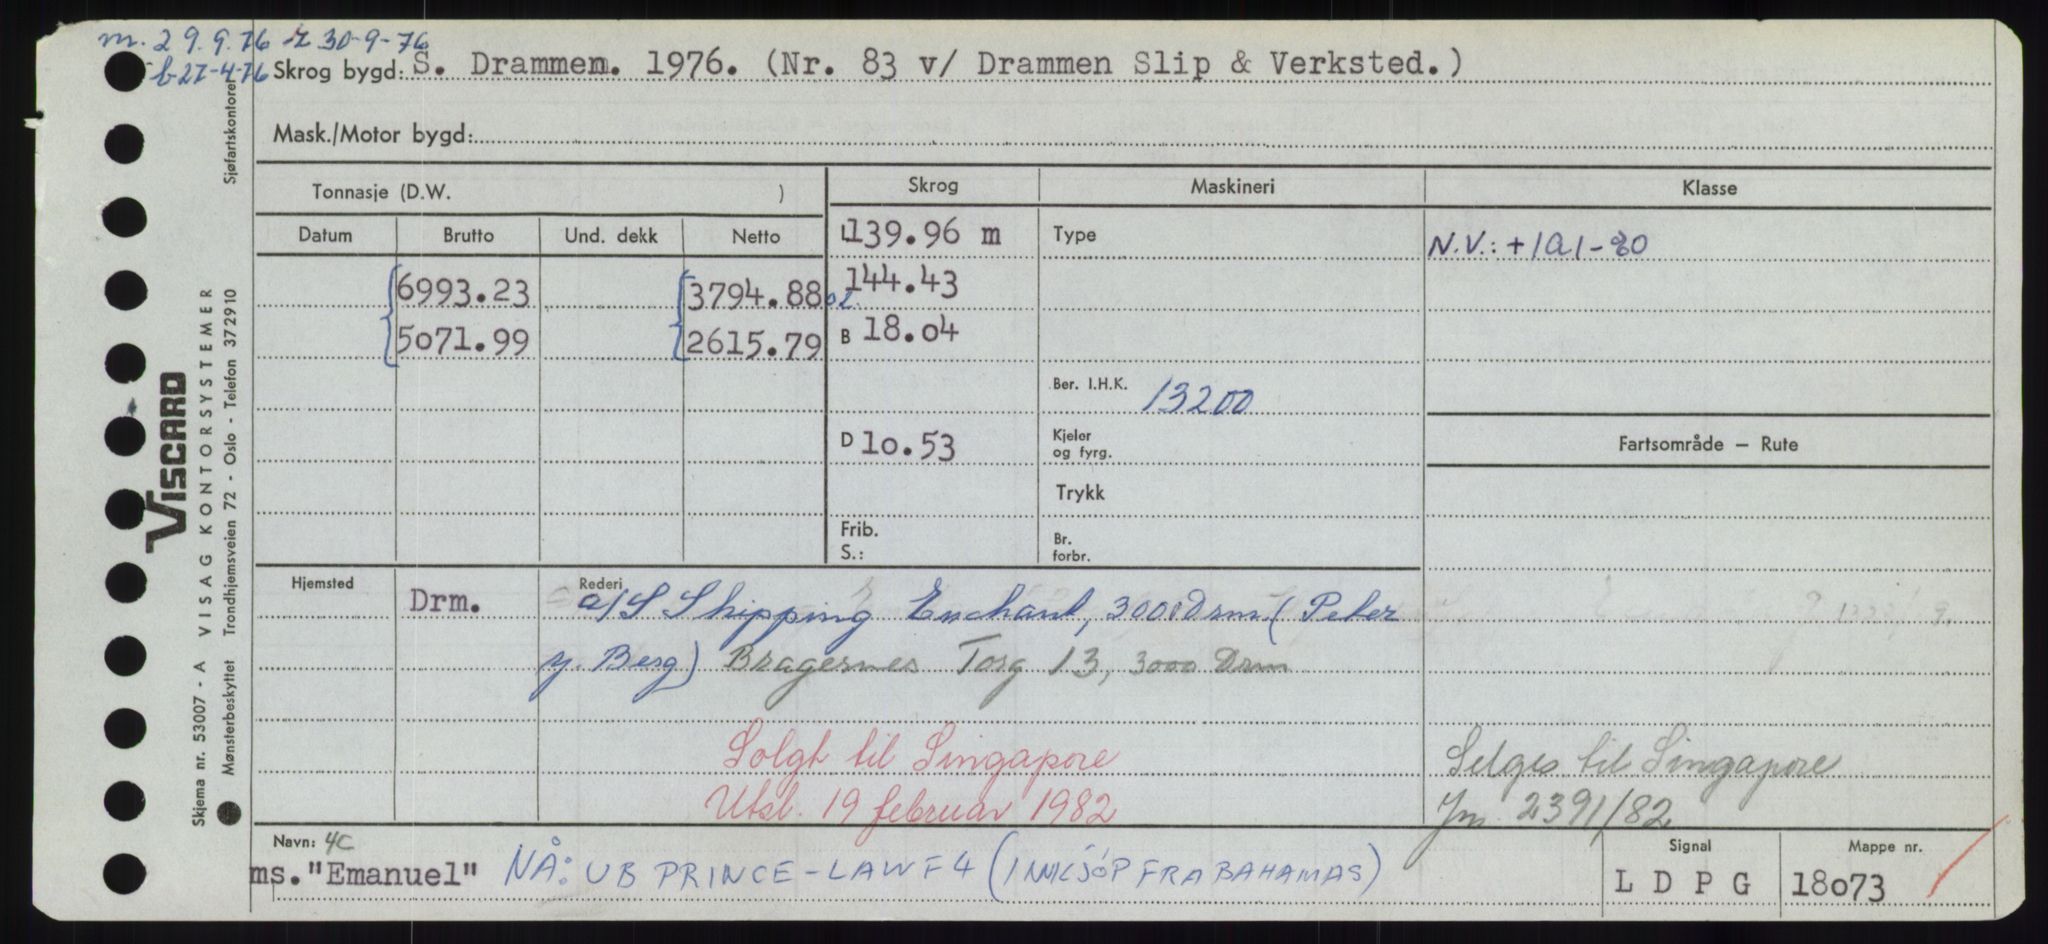 m. 29.9.76 r 30-9-76
b-27-4-76 Skrog bygd: S. Drammen. 1976. (Nr. 83 v/ Drammen Slip & Verksted.)
Mask./Motor bygd:
Tonnasje (D.W. ) Skrog Maskineri Klasse
Datum Brutto Und. dekk Netto L 139.96 m Type N.V.: +1A1-80
6993.23 3794.88 02 144.43
5071.99 2615.79 B 18.04
Ber. I.H.K. 13200
D 10.53 Kjeler og fyrg. Fartsområde – Rute
Trykk
Frib. S.: Br. forbr.
Hjemsted Drm. Rederi a/S Shipping Enchant, 3000 Drm. (Peter
y. Berg) Bragernes Torg 13, 3000 Drm
Solgt til Singapore Selges til Singapore
Utsl. 19 februar 1982 Jnr. 2391/82
Navn: 4C Signal Mappe nr.
ms. "Emanuel" NÅ: UB PRINCE-LAWF4 (INNKJØP FRA BAHAMAS) LDPG 18073
Skjema nr. 53007 - A VISAG KONTORSYSTEMER
VISCARD
Mønsterbeskyttet Trondhjemsveien 72 - Oslo - Telefon 372910 Sjøfartskontoret